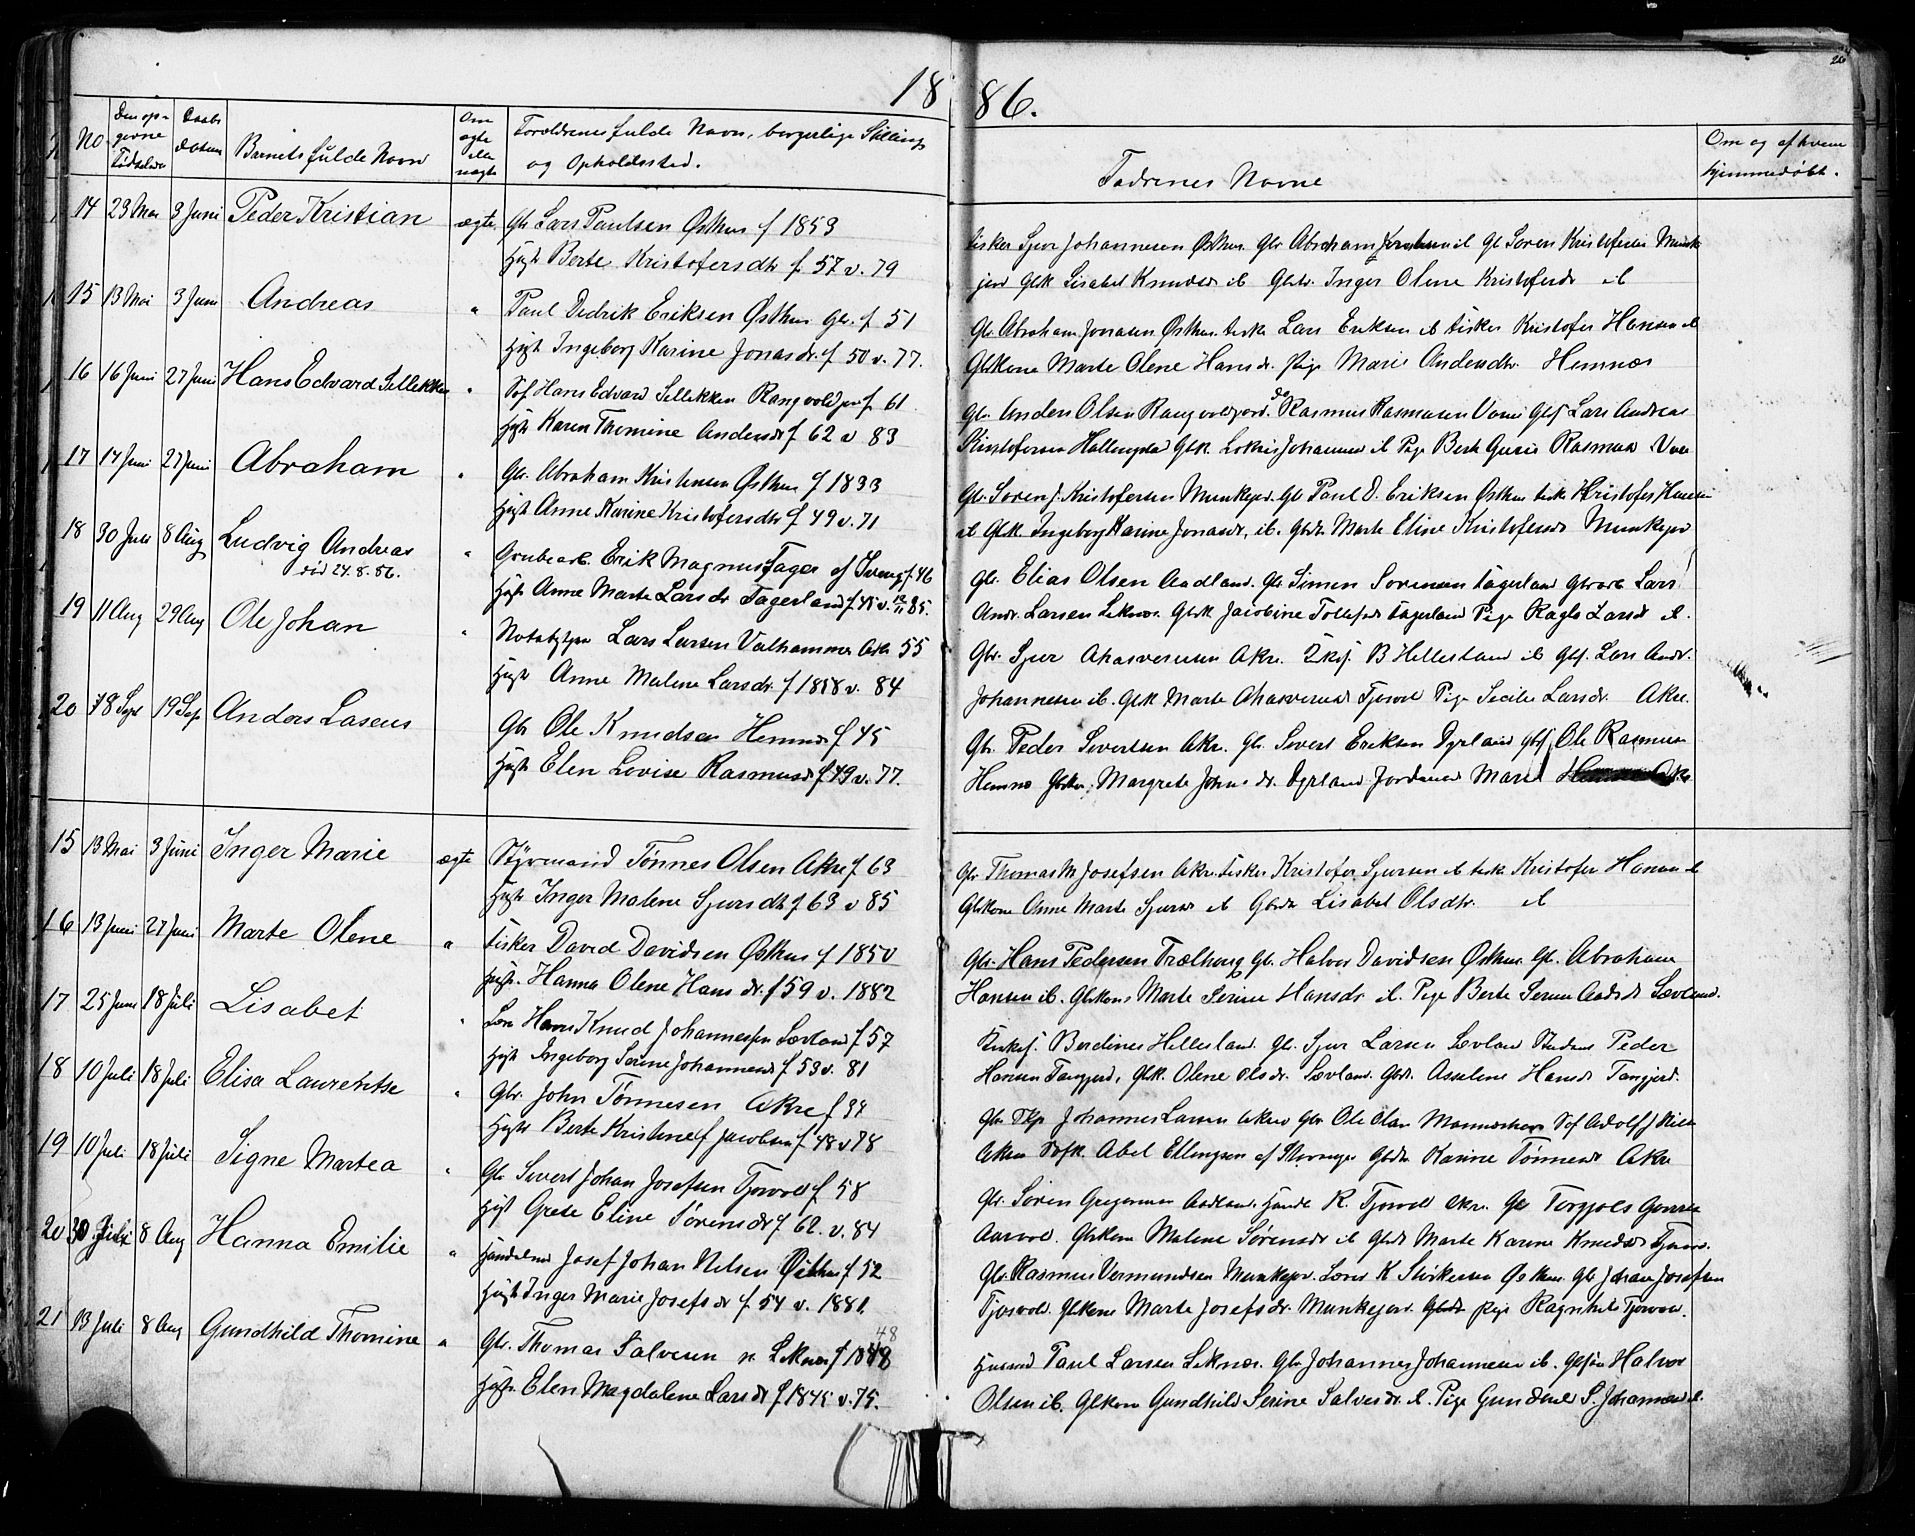 18 86.
No
Den op-
givne
Fødselsdt
Daabs
datum
Barnets fulde Navn
Om
ægte
eller
uægte
Forældrenes fulde Navn, borgerlige Stilling
og Opholdssted.
Fadrenes Navne
Om og af hvem
hjemmedøbt.
14 23 Mai 3 Juni Peder Kristian ægte Gbr Lars Paulsen Østhus f 1853
Hust Berte Kristofersdtr f 57 v. 79
Fisker Sjur Johannesen Østhus. Gbr Abraham Jonasen ib Gbr Soren Kristofersen Munke
jord Gbk Lisabet Knudsd ib Gbdtr. Inger Olene Kristofersdr ib
15 13 Mai 3 Juni Andreas " Paul Didrik Eriksen Østhus Gbr. f 51
Hust Ingeborg Karine Jonasdr. f 50 v. 77.
Gbr Abraham Jonasen Østhus. Fisker Lars Eriksen ib Fisker Kristofer Hansen ib
Gbkone Marte Olene Hansdr. Pige Mari Andersdtr. Hemnæs
16 16 Juni 27 Juni Hans Edvard Sellekken " Sof Hans Edvard Sellekken Rangvoldjor f 61
Hust Karen Thomine Andersdr f 62 v 83
Gbr. Anders Olsen Rangvoldjord. Do Rasmus Rasmusen Gbs Lars Andreas
Kristofersen Gbk. Johannesd ib Pige Berte Gurie Rasmusd
17 14 Juni 27 Juni Abraham " Gbr. Abraham Kristensen Østhus f 1833
Hust Anne Karine Kristofersdtr f 49 v. 71
Gbr. Soren J. Kristofersen Munkejor. Gbr Paul D. Eriksen Østhus Fisk Kristofer Hansen
ib Gbk. Ingeborg Karine Jonasdr, ib. Gbdt. Marte Eline Kristofersdr Munkejor
18 30 Juli 8 Aug Ludvig Andreas
død 24.8.86.
" Grubearb. Erik Magnus Fager af Sverig f. 46
Hust Anne Marte Larsdr Fagerland f. 45 v. 85.
Gbr. Elias Olsen Aadland. Gbr Simon Sorensen Fagerland Lars
Andr. Larsen Leknæs. Gbk Jacobine Tollefsd Fagerland Pige Larsd ib.
19 11 Aug 29 Aug Ole Johan " Lars Larsen Valhammer Akre 55
Hust Anne Malene Larsdr. f 1858 v. 84
Gbr. Sjur Ahasverusen Akre. Kirkesj. B Hellesland ib Gbs. Lars Andr.
Johannesen ib. Gbk Marte Ahasverusd Tjosvol Pige Secilie Larsdr. Akre.
20 18 Sept 19 Sep Anders Lasius Gbr Ole Knudsen Hemnæs f 45
Hust Elen Lovise Rasmusdr f 49 v. 77.
Gbr. Peder Sivertsen Akre. Gbr. Sivert Eriksen Dyrland Gbs Ole Rasmusen
Hemnæs Gbkon. Margrete Johns dr. Dyrland Jordmor Marie Akre
15 13 Mai 3 Juni Inger Marie ægte Styrmand Tønnes Olsen Akre f 63
Hust Inger Malene Sjursdtr f 63 v 85
Gbr. Thomas M Josefsen Akre. Fisker Kristofer Sjursen ib Fisk. Kristofer Hansen ib
Gbkone Anne Marte Sjursd ib Gbdtr Lisabet Olsdtr. ib
16 13 Juni 27 Juni Marte Olene " Fisker David Davidsen Østhus f 1850
Hust. Hanna Olene Hansdr. f 59 v. 1882
Gbr. Hans Pedersen Trælhoug Gbr. Halvor Davidsen Østhus Gbr. Abraham
Hansen ib. Gbkone Marte Serine Hansdr ib. Pige Berte Serine Sævland.
17 25 Juni 18 Juli Lisabet " Knud Johannessen Sævland f 57
Hust Ingeborg Serine Johannesd f. 53 v. 81
Kirkesj. Berdines Hellesland. Gbr. Sjur Larsen Sævland Student Peder
Hansen Tangjerd, Gbk. Olene Olsdr. Sævland. Gbdt. Asseline Hansdr Tangjerd.
18 10 Juli 18 Juli Elisa Laurentse " Gbr. John Tønnesen Akre f 34
Hust Berte Kristine Jacobsen f. 48 v 78
Gbr Skp Johannes Larsen Akre Gbr Ole Olsen Mannes Sof Adolf J
Akre Sofk. Abel Ellingsen af Stavanger Gbdtr Karine Tønnesdr Akre
19 10 Juli 18 Juli Signe Martea " Gbr Sivert Johan Josefsen Tjosvol f 58
Hust Grete Eline Sørensdr f 62. v. 84
Gbr. Søren Gregersen Aadland. Handl R. Tjosvoll Akre. Gbr Torgjels
Aasvol. Gbkone Malene Sørensdr ib Gbdt Marte Karine Knudsdr Tjosv.
20 30 Juli 8 Aug Hanna Emilie " Handelsmd Josef Johan Nilsen Østhus f 52
Hust Inger Marie Josefsdr f. 54 v. 1881.
Gbr. Rasmus Vermundsen Munkejor. Lærer K Størkersen Østhus. Gbr Johan Josefsen
Tjosvold. Gbkone Marte Josefsdr. Munkejord. Pige Ragnhild Tjosvol.
21 13 Juli 8 Aug Gundhild Thomine " Gbr. Thomas Salvesen n. Leknes f 1848
48
Hust. Elen Magdalene Larsdr f 1845 v. 75.
Husmd Paul Larsen Leknæs. Gbr Johannes Johannesen ib. Gbsøn Halvor
Olsen ib. Gbkone Gundhild Serine Salvesdr. ib. Pige Gundhild S. Johannesd ib.